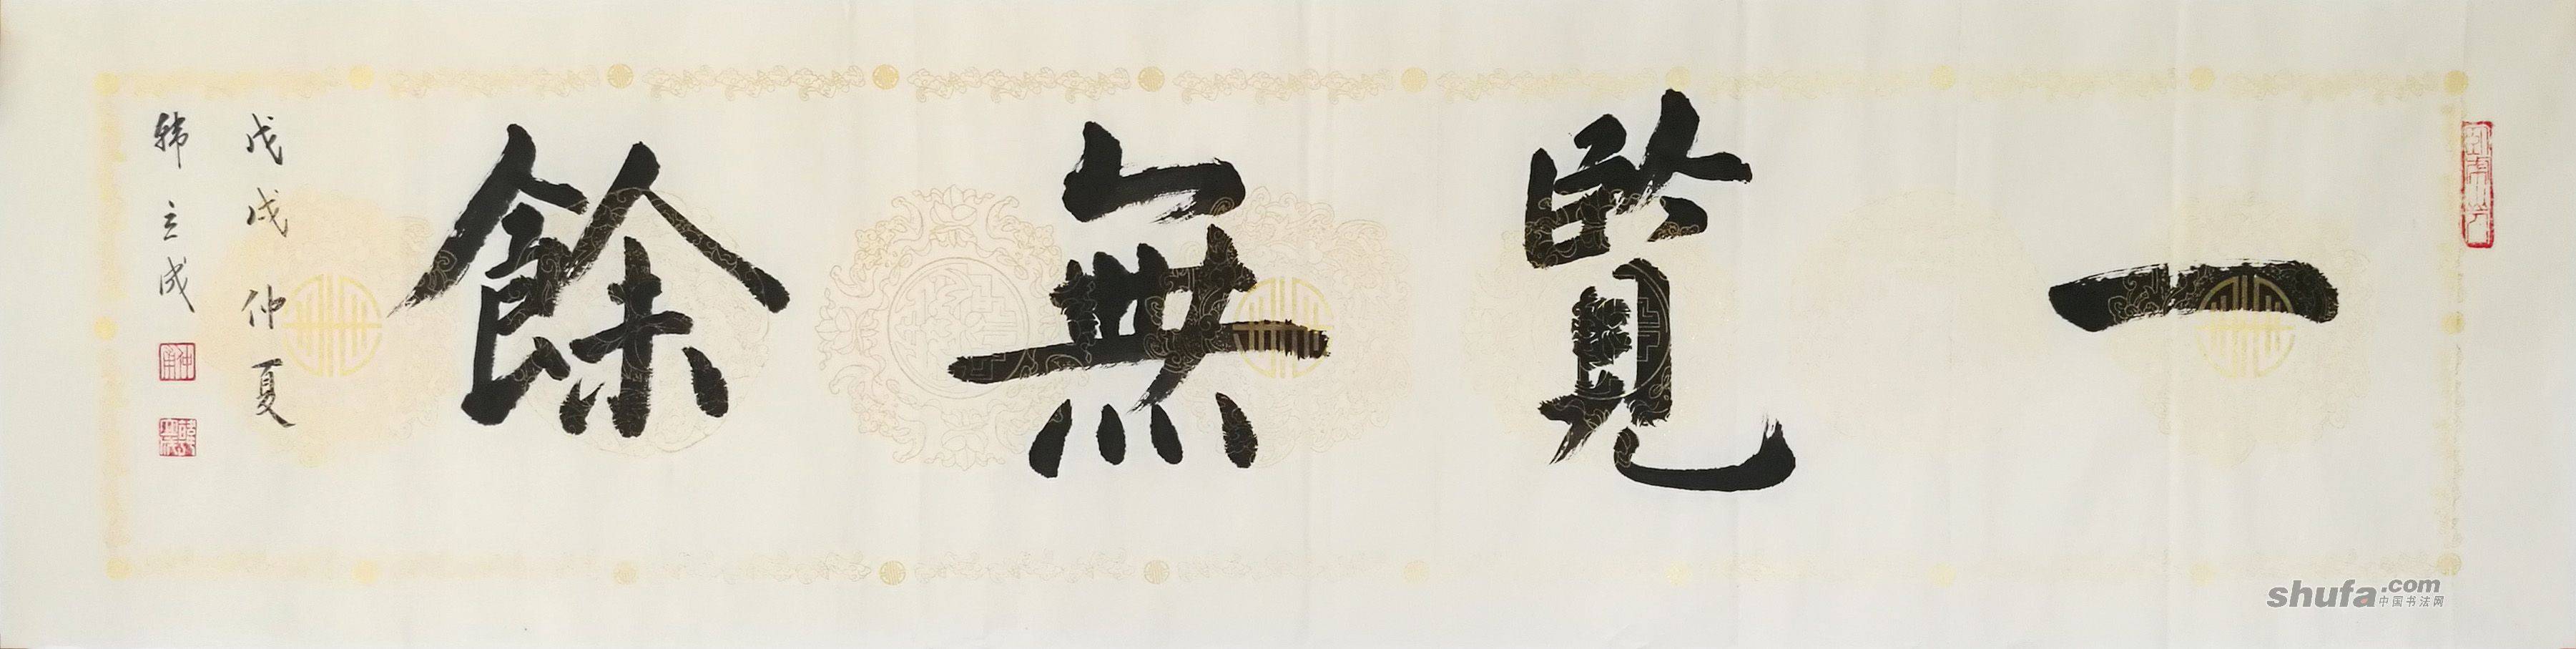 一覽無餘
戊戌仲夏
韩立成
shufa.com
中国书法网